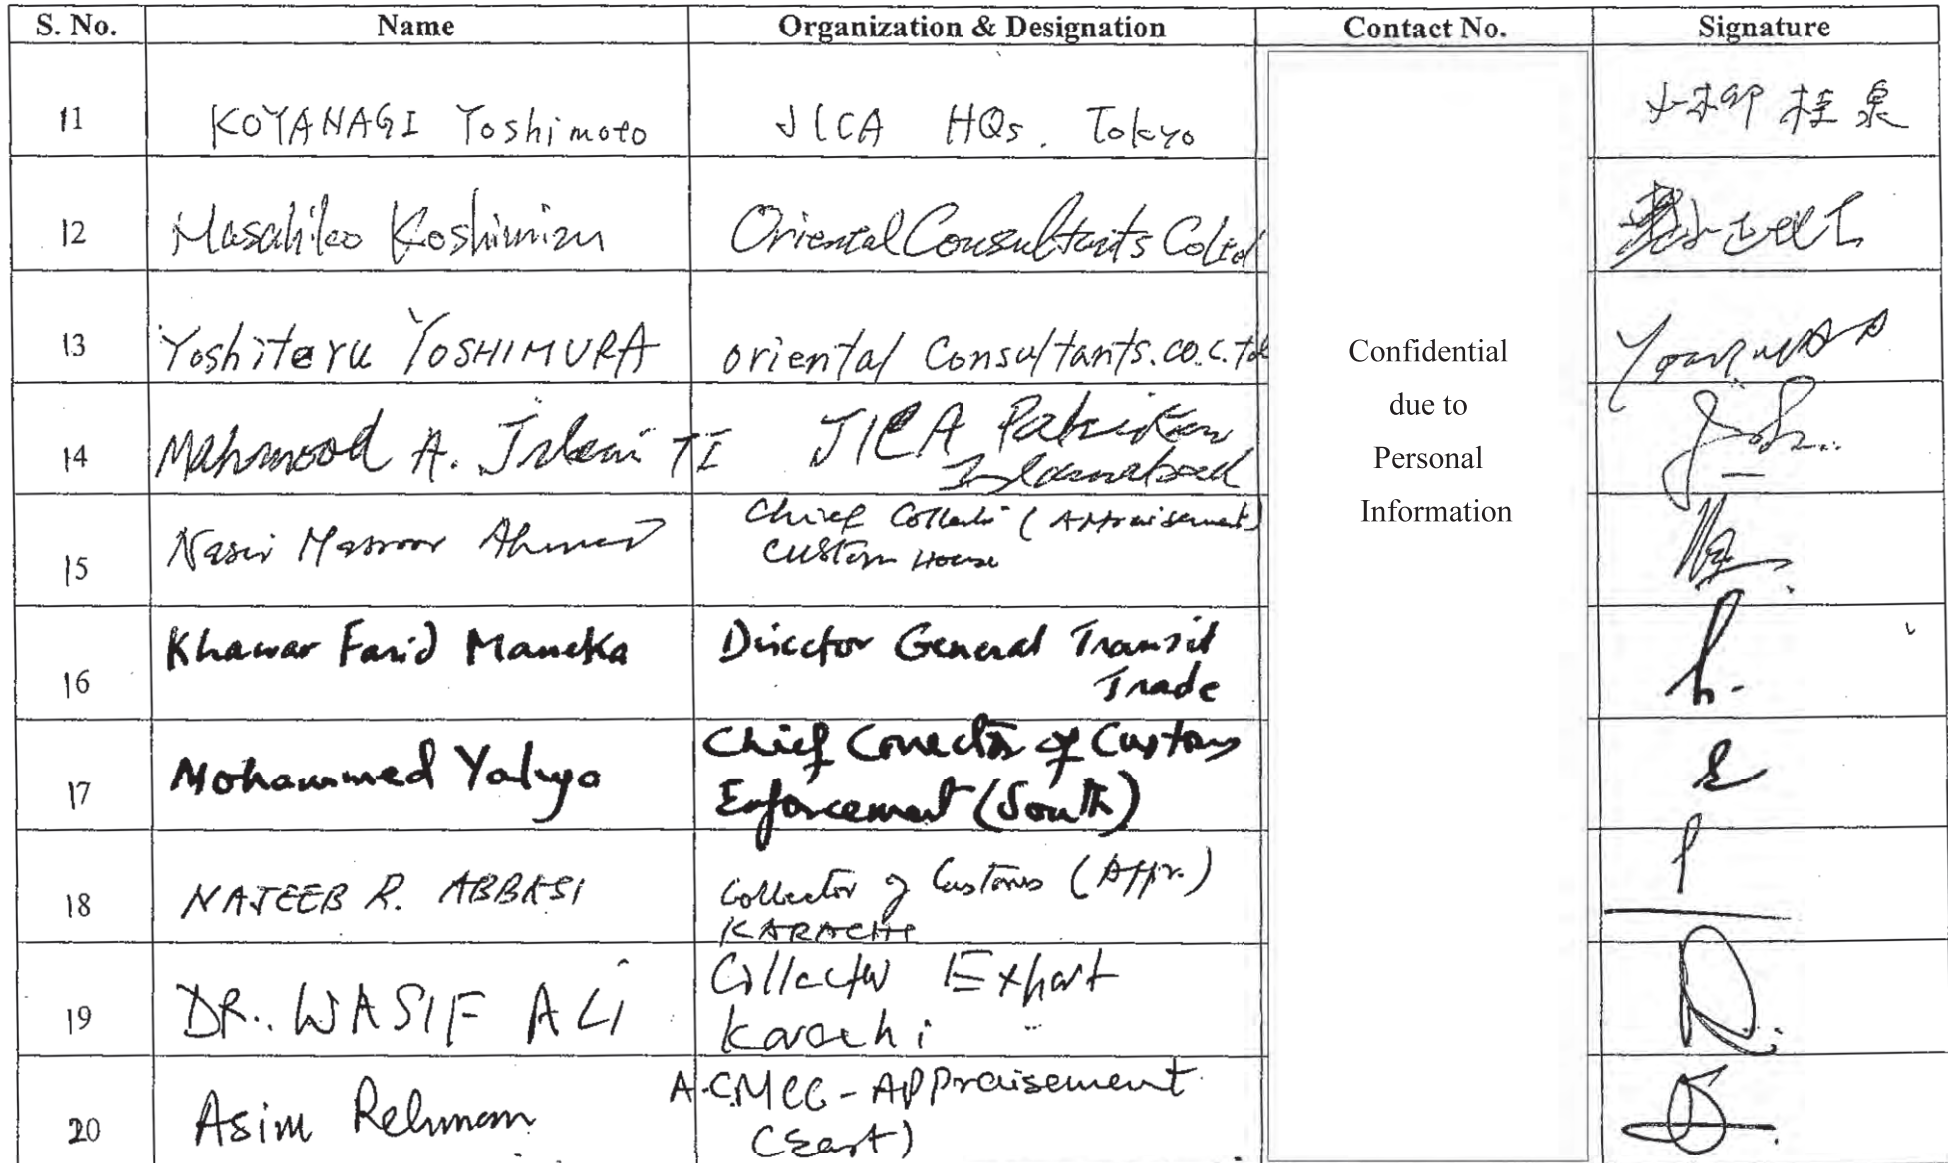 S. No. Name Organization & Designation Contact No. Signature
11 KOYANAGI Yoshimoto JICA HQs. Tokyo 小柳 桂泉
12 Masahiko Koshimizu Oriental Consultants Co Ltd
13 Yoshiteru YOSHIMURA oriental Consultants.co.L.td
14 Mahmood A. JICA Pakistan
Islamabad
15 Nasir Masroor Ahmed Chief Collector (Appraisement)
Custom House
16 Khawar Farid Maneka Director General Transit
Trade
17 Mohammed Yahya Chief Collector of Customs
Enforcement (South)
18 NAJEEB R. ABBASI Collector of Customs (Appr.)
KARACHI
19 DR.. WASIF ALI Collector Export
Karachi
20 Asim Rehman A.C MCC - Appraisement
(East)
Confidential
due to
Personal
Information